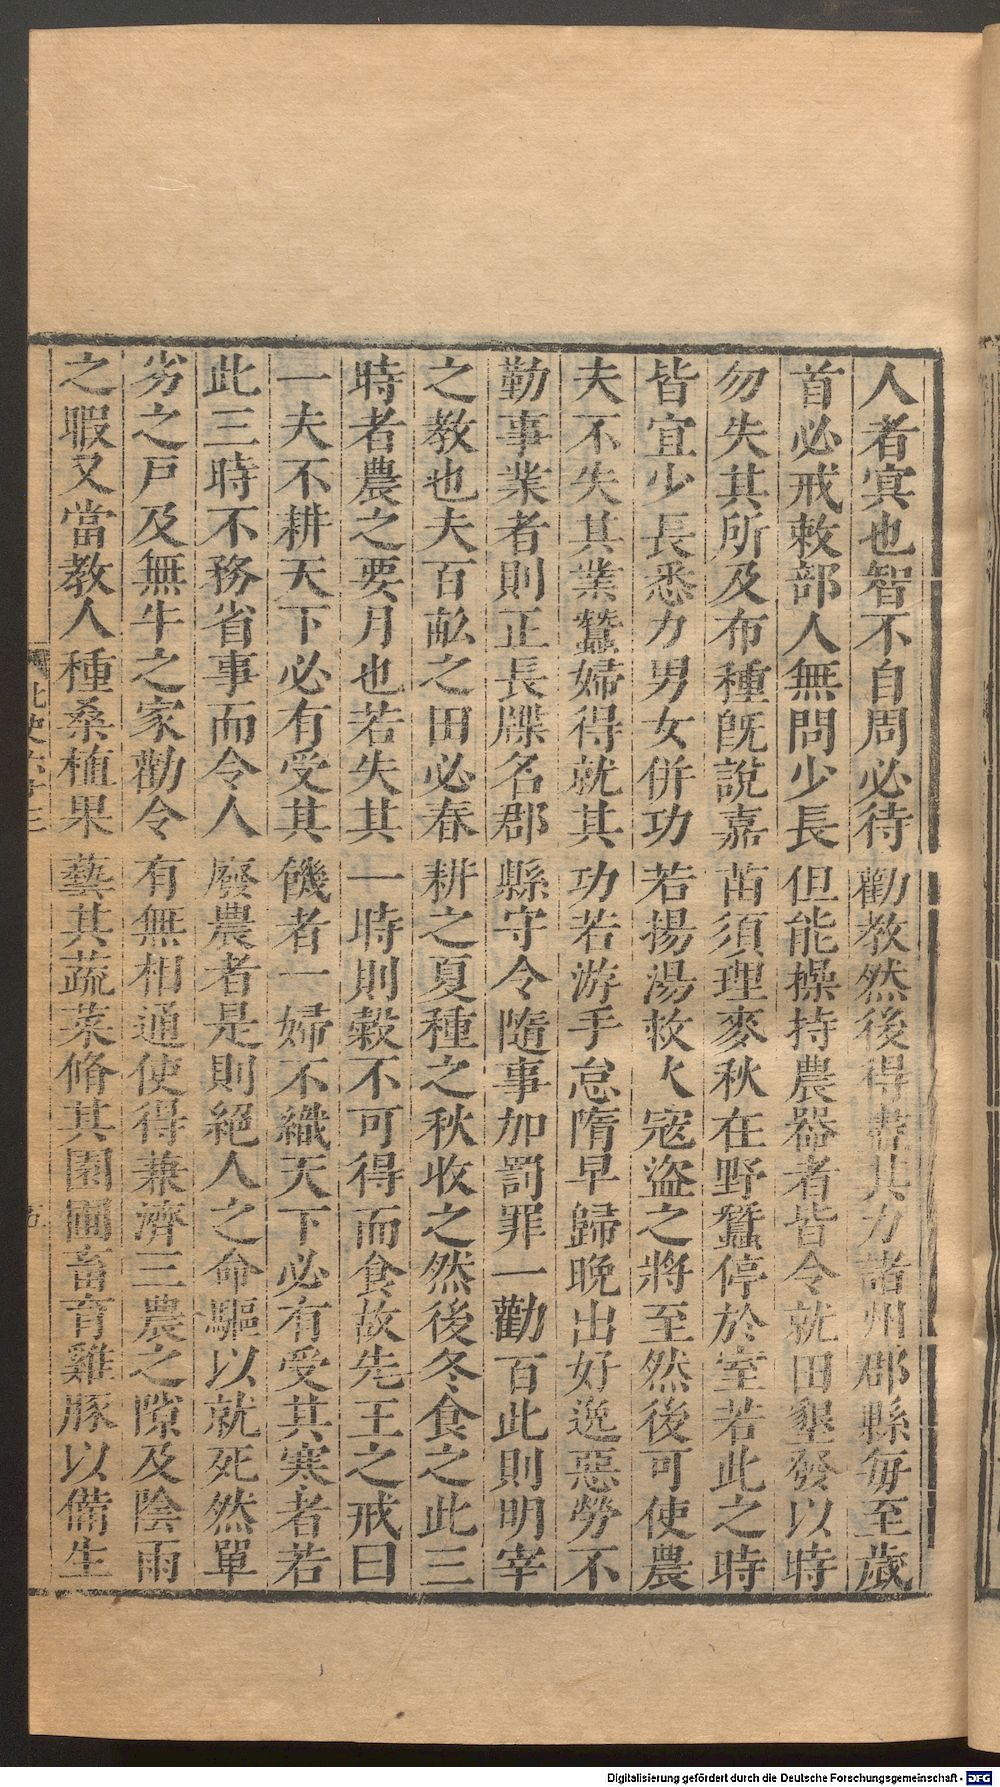 人者㝠也智不自問必待勸教然後得盡其力諸州郡縣每至歲
首必戒敕部人無問少長但能操持農器者皆令就田墾發以時
勿失其所及布種旣說嘉苗須理麥秋在野蠶停於室若此之時
皆宜少長悉力男女併功若揚湯救火寇盜之將至然後可使農
夫不失其業蠶婦得就其功若游手怠隋早歸晚出好逸惡勞不
勤事業者則正長牒名郡縣守令隨事加罰罪一勸百此則明宰
之教也夫百畝之田必春耕之夏種之秋收之然後冬食之此三
時者農之要月也若失其一時則穀不可得而食故先王之戒曰
一夫不耕天下必有受其饑者一婦不織天下必有受其寒者若
此三時不務省事而令人廢農者是則絕人之命驅以就死然單
劣之戶及無牛之家勸令有無相通使得兼濟三農之隙及陰雨
之暇又當教人種桑植果藝其蔬菜脩其園圃畜育雞豚以備生
北史六十三
五
Digitalisierung gefördert durch die Deutsche Forschungsgemeinschaft - DFG